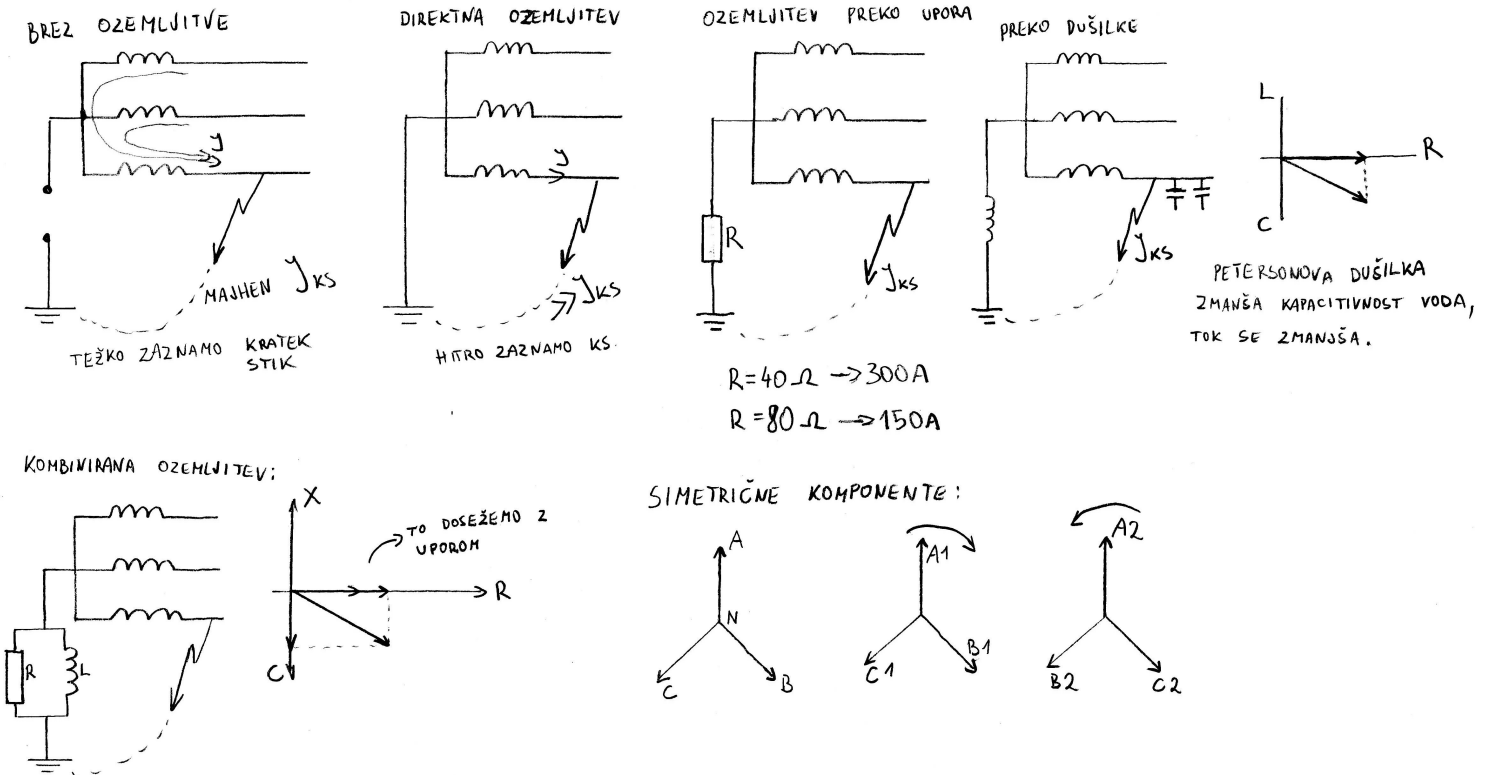 BREZ OZEMLJITVE
y
MAJHEN y KS
TEŽKO ZAZNAMO KRATEK
STIK
DIREKTNA OZEMLJITEV
y
y KS
HITRO ZAZNAMO KS.
OZEMLJITEV PREKO UPORA
R
y KS
R=40Ω → 300A
R=80Ω → 150A
PREKO DUŠILKE
y KS
L
R
C
PETERSONOVA DUŠILKA
ZMANŠA KAPACITIVNOST VODA,
TOK SE ZMANJŠA.
KOMBINIRANA OZEMLJITEV:
R
L
X
TO DOSEŽEMO Z
UPOROM
R
C
SIMETRIČNE KOMPONENTE:
A
N
C
B
A1
C1
B1
A2
B2
C2